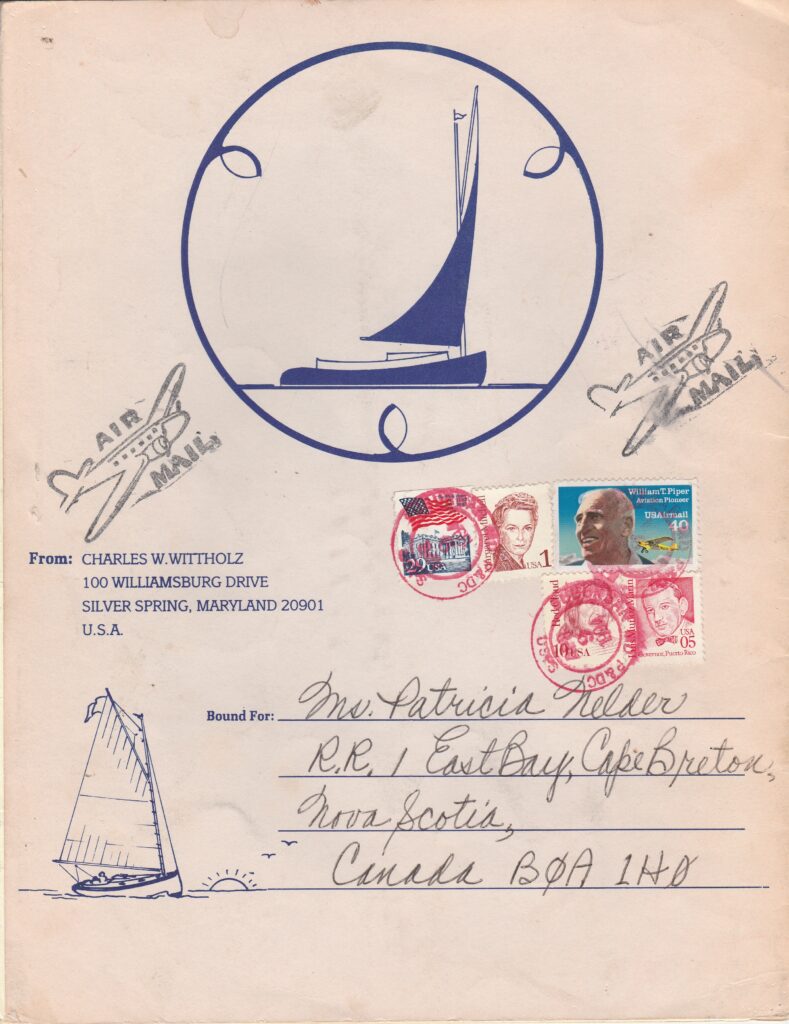 AIR
MAIL
AIR
MAIL
29 USA
1
William T. Piper
Aviation Pioneer
USAirmail
40
10 USA
USA
05
Governor, Puerto Rico
P&DC
P&DC
From: CHARLES W. WITTHOLZ
100 WILLIAMSBURG DRIVE
SILVER SPRING, MARYLAND 20901
U.S.A.
Bound For: Ms. Patricia Nelder
R.R. 1 East Bay, Cape Breton,
Nova Scotia,
Canada BØA 1HØ